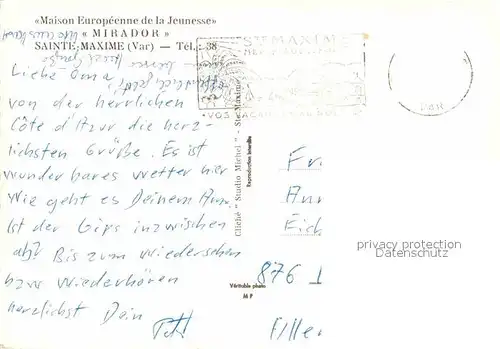 «Maison Européenne de la Jeunesse»
« MIRADOR »
SAINTE-MAXIME (Var) — Tél. : 38
STE MAXIME
VOS VACANCES
VAR
Liebe Oma
von der herrlichen
Côte d'Azur die herz-
lichsten Grüße. Es ist
wunderbares Wetter hier
Wie geht es Deinem Arm.
Ist der Gips inzwischen
ab? Bis zum wiedersehen
bzw wiederhören
herzlichst Dein
Cliché "Studio Michel" - Ste-Maxime
Reproduction interdite
Véritable photo
M P
Fr
Ann
Eich
876
Eller
privacy protection
Datenschutz